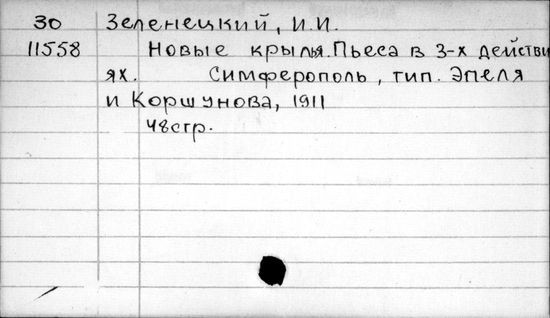 30 Зеленецкий, И.И.
11558 Новые крылья. Пьеса в 3-х действи
ях. Симферополь, тип. Эпеля
и Коршунова, 1911
48стр.